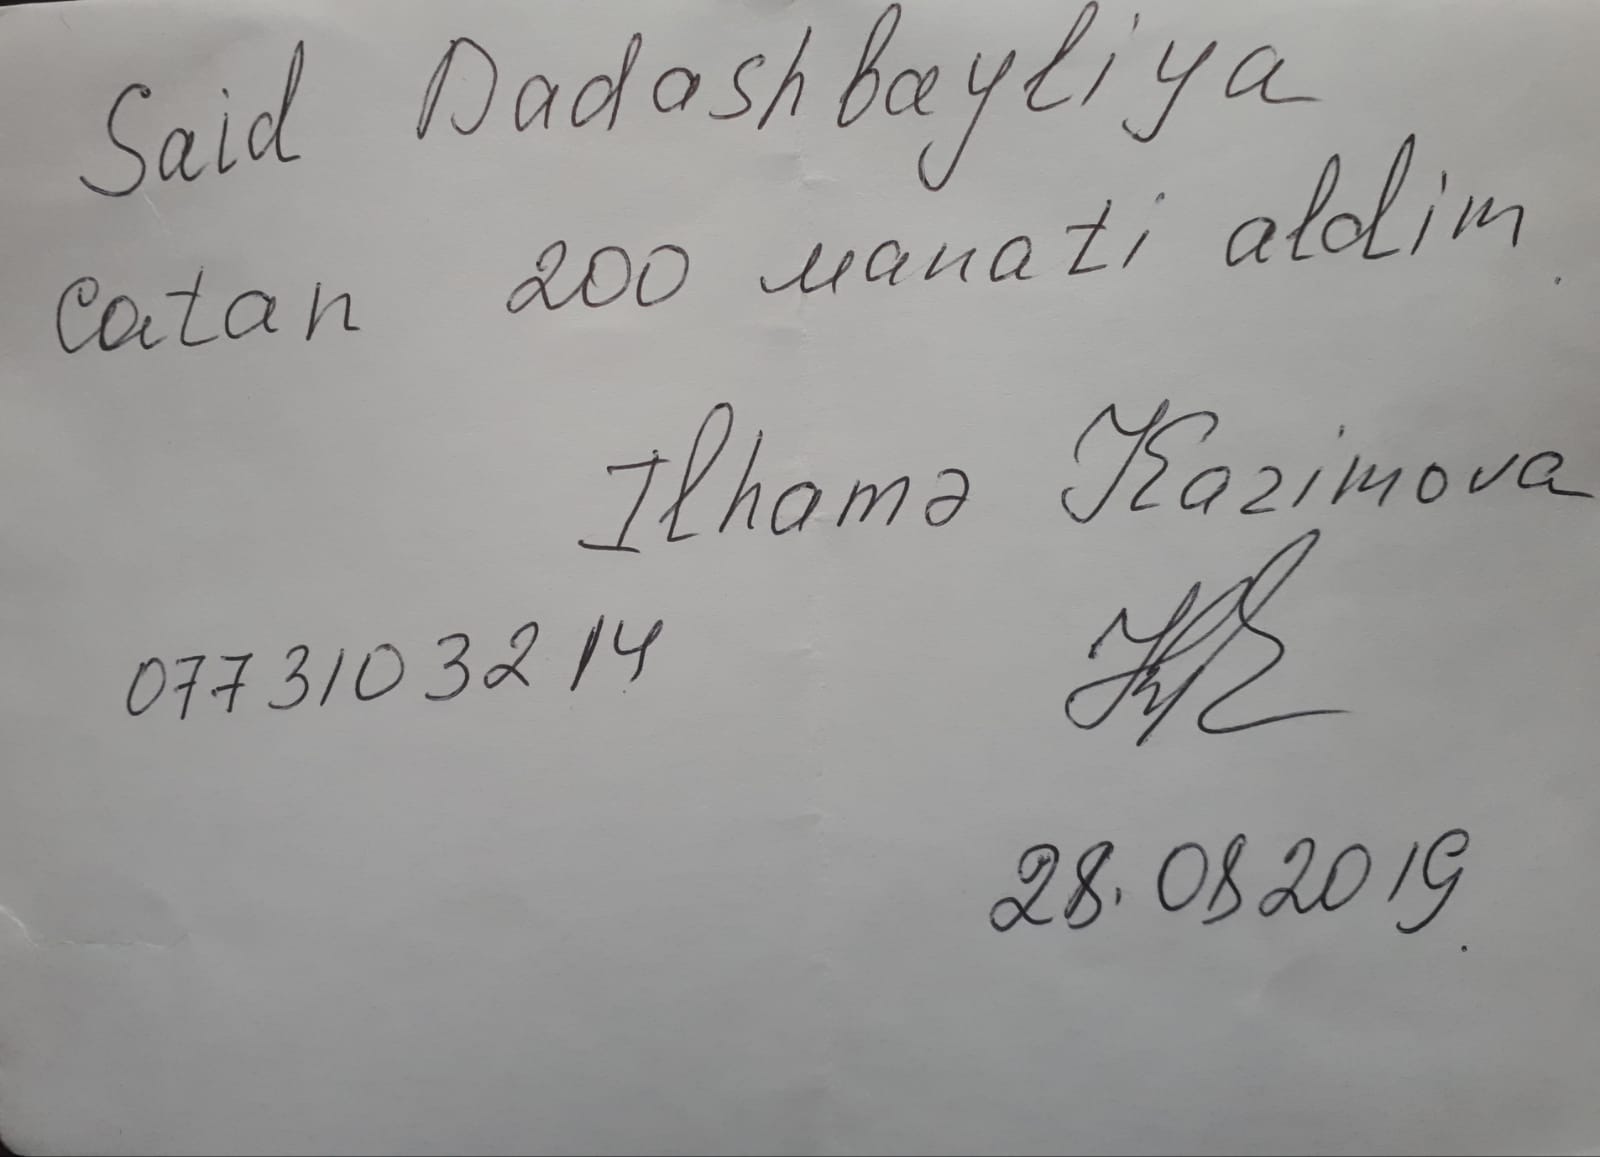 Said Dadashbayliya
catan 200 manati aldim.
Ilhamə Kazimova
0773103214
28.082019.